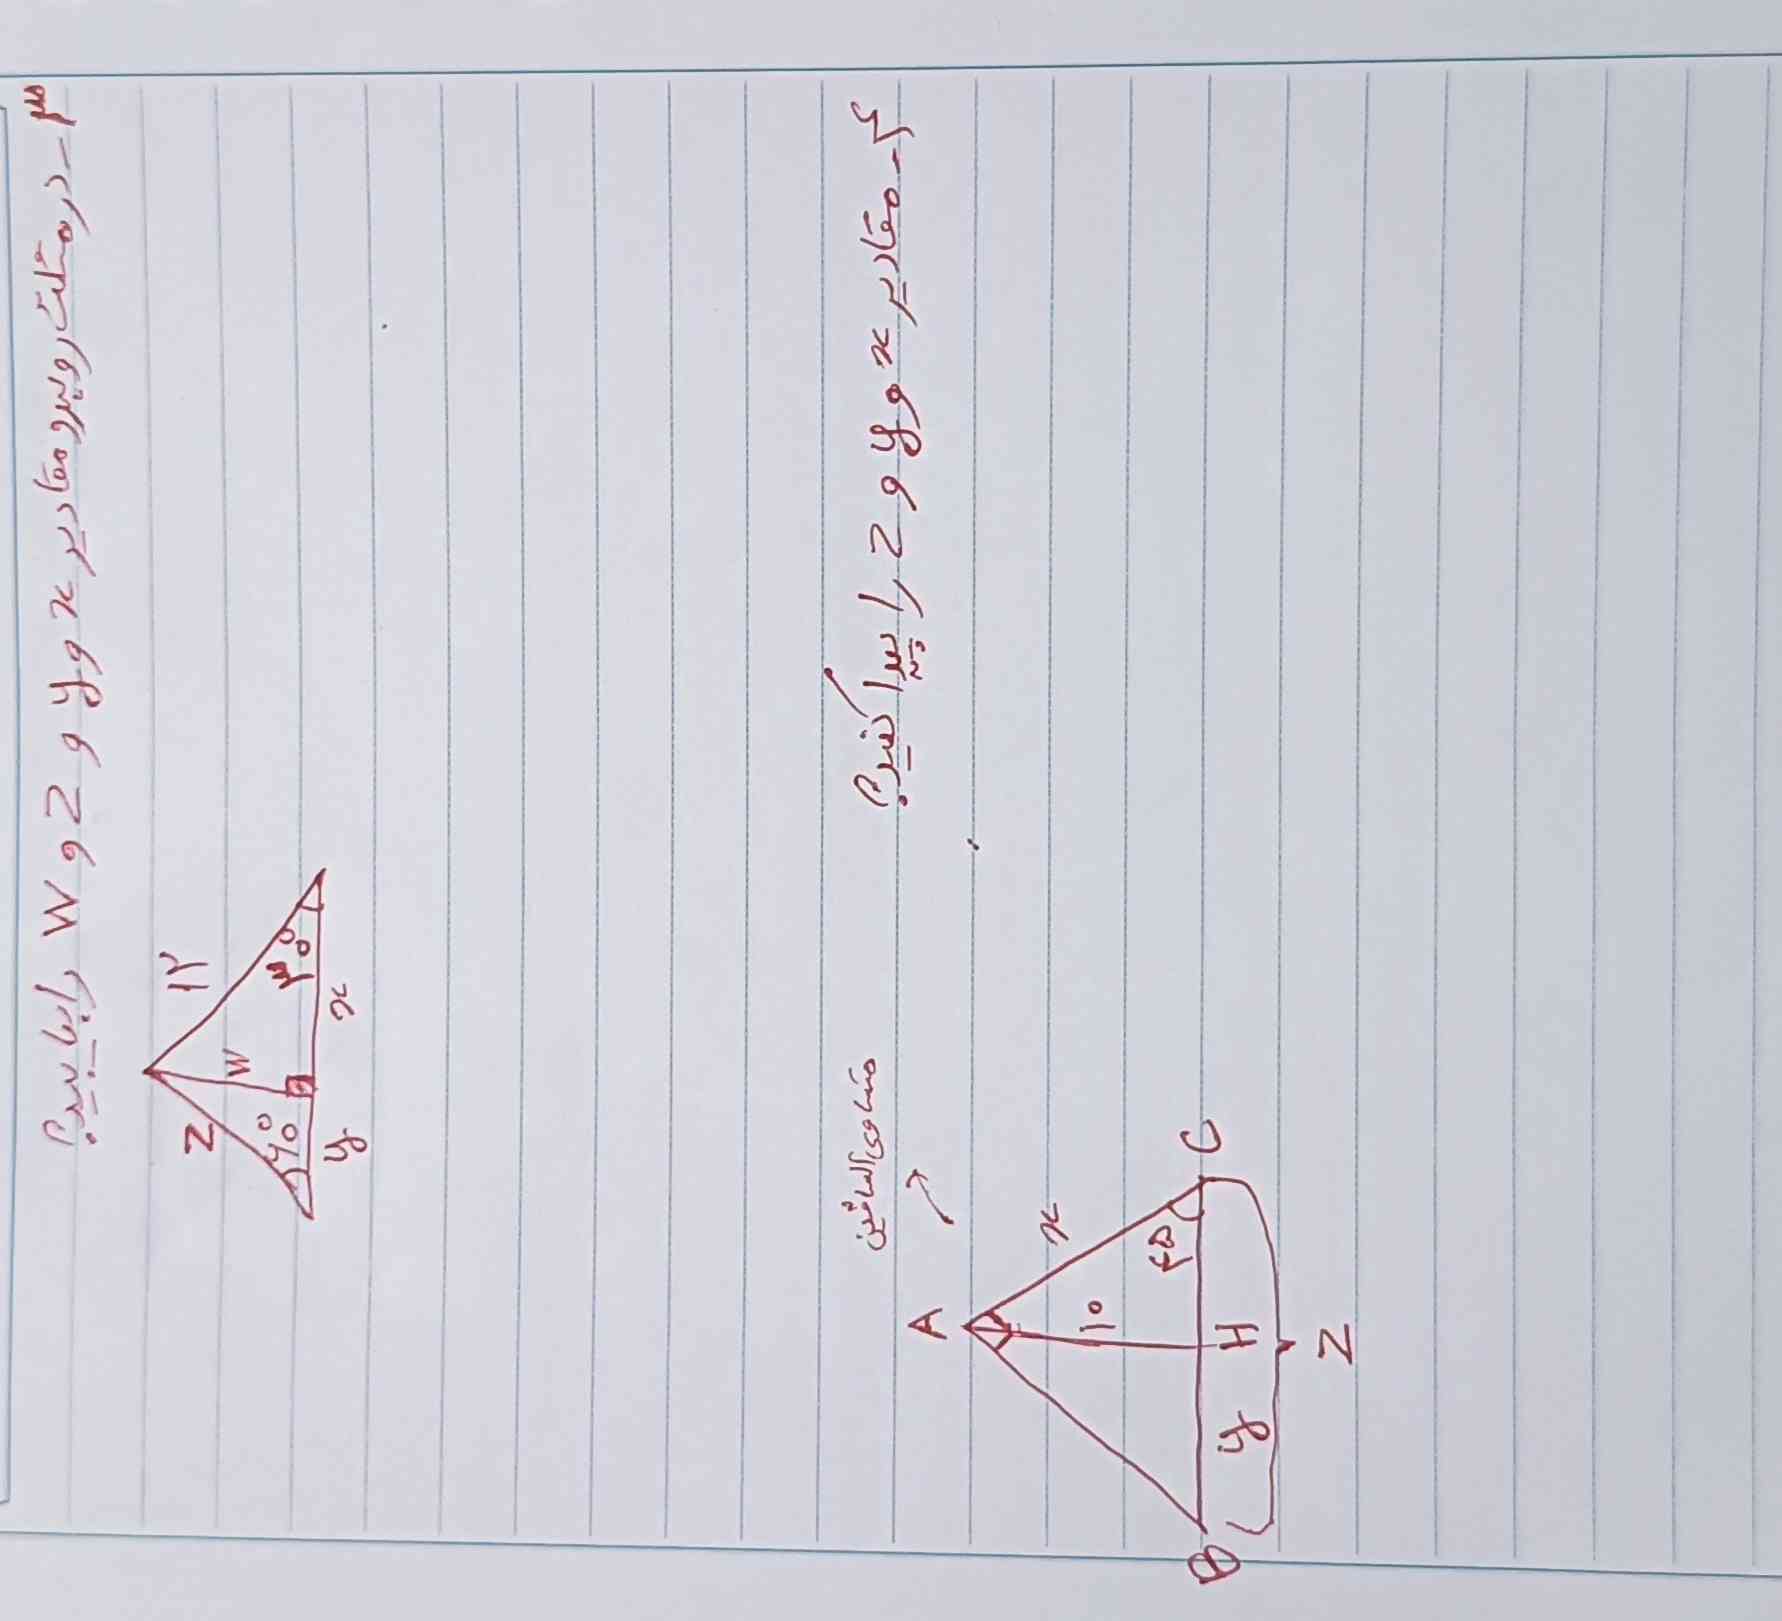 ۳ - در مثلث روبرو مقادیر x و y و z و w را بیابید؟
z
۱۲
w
۶۰°
۳۰°
y
x
۴ - مقادیر x و y و z را پیدا کنید؟
متساوی الساقین
A
x
۱۰
۴۵
B
y
H
C
z